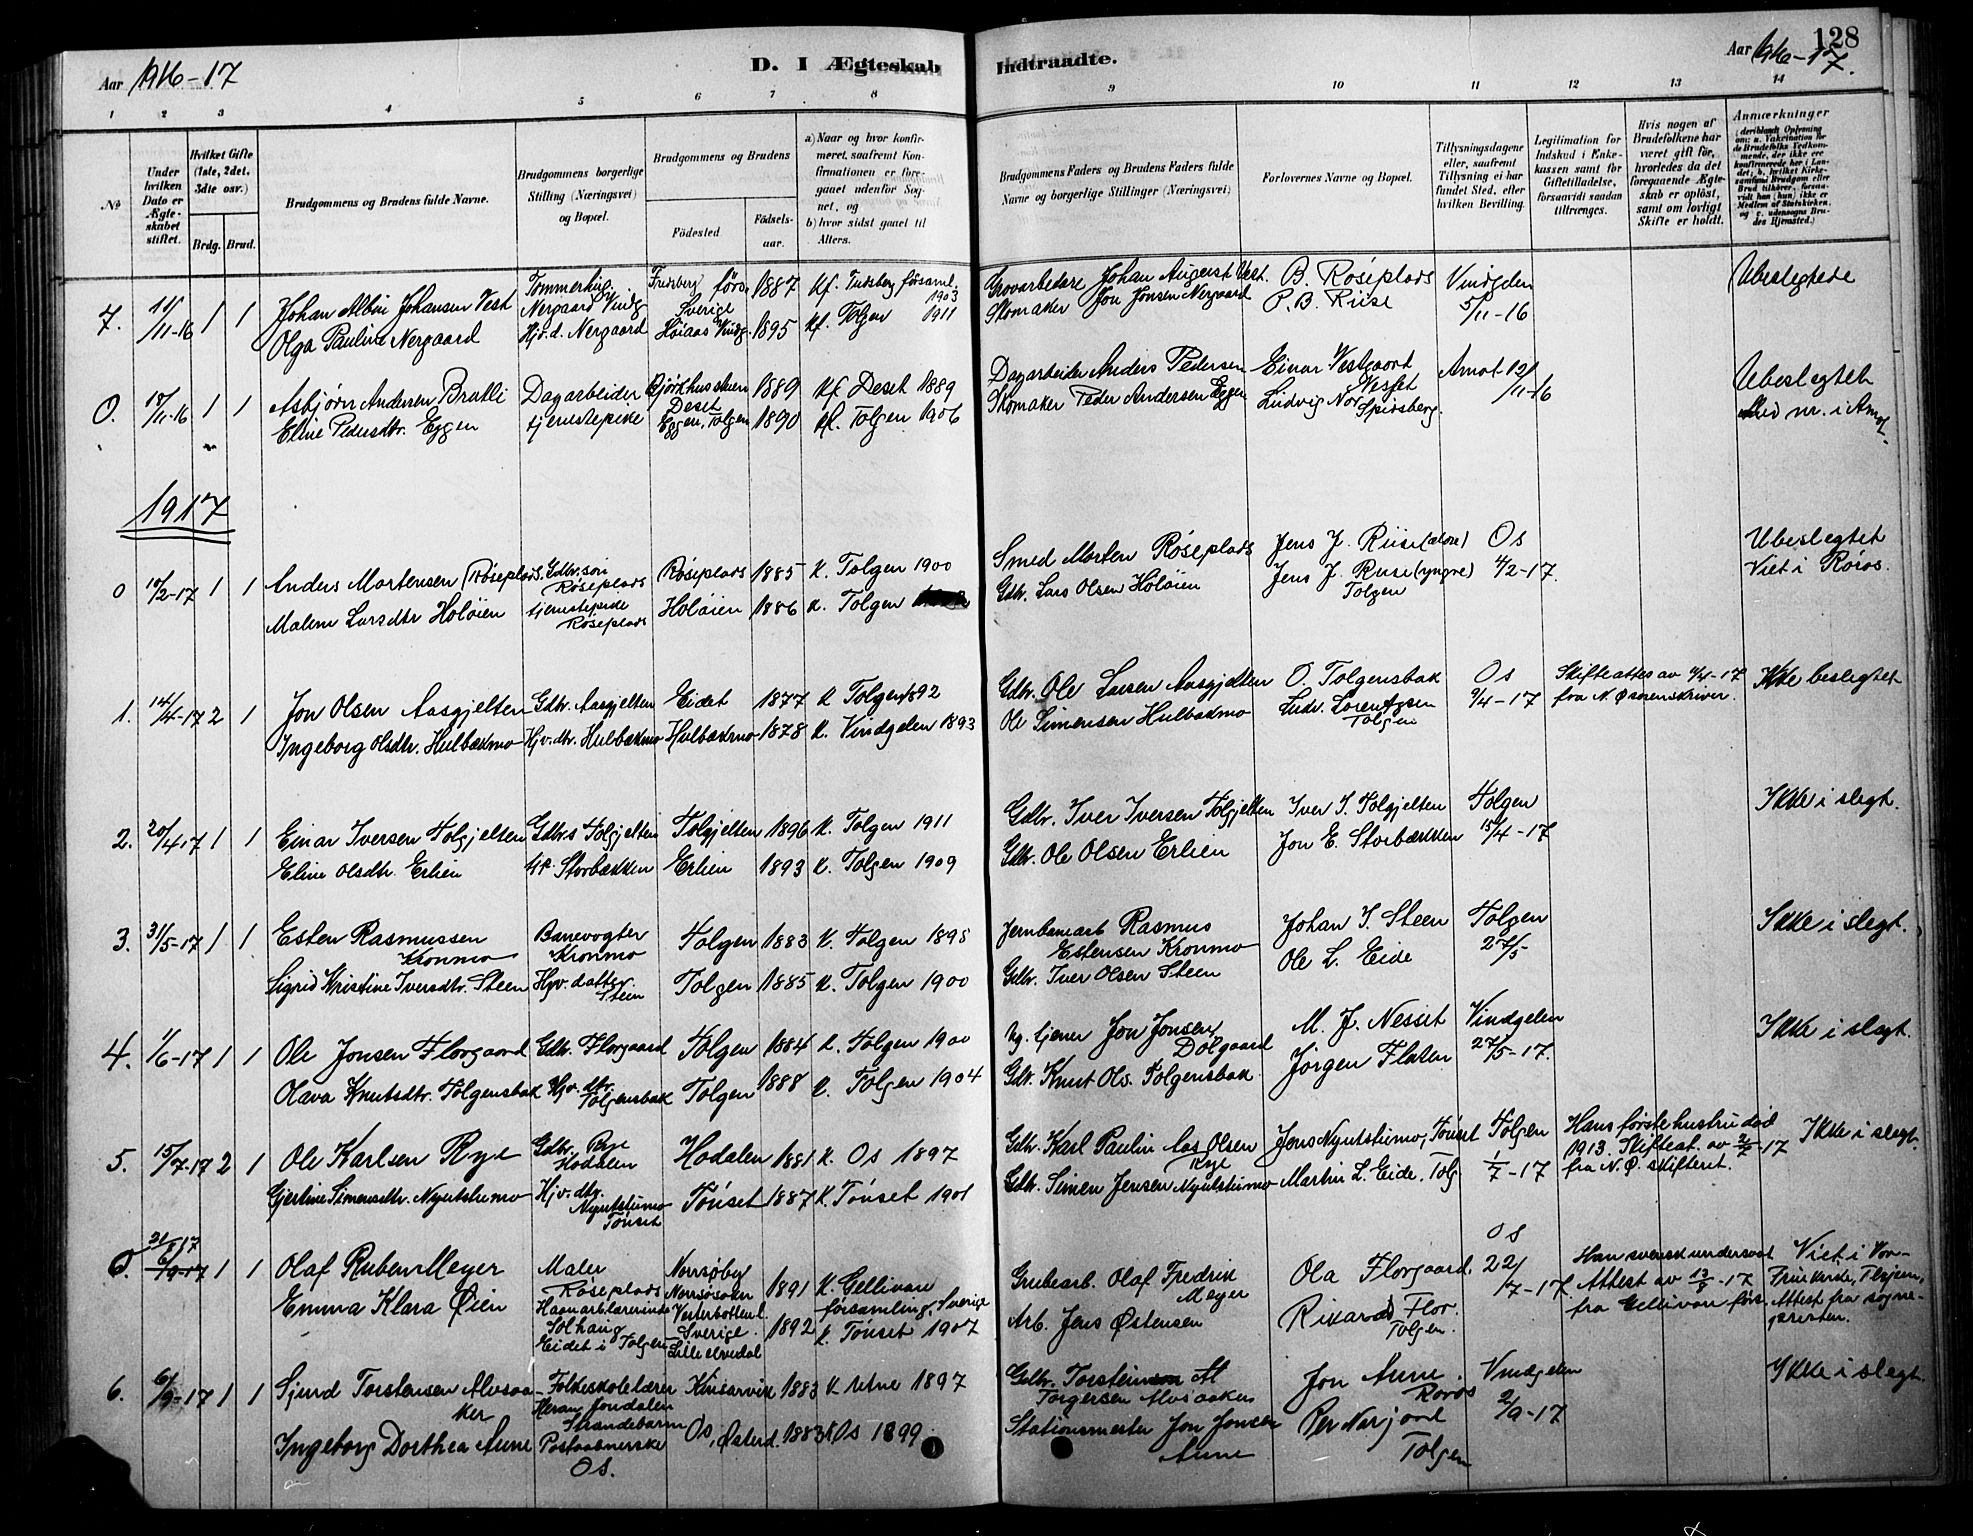 Aar 1916-17
D. I Ægteskab
Indtraadte.
Aar 1916-17.
128
1 2 3 4 5 6 7 8 9 10 11 12 13 14
No
Under hvilken Dato er Ægteskabet stiftet.
Hvilket Gifte (1ste, 2det, 3die osv.)
Brdg. Brud.
Brudgommens og Brudens fulde Navne.
Brudgommens borgerlige Stilling (Næringsvei) og Bopæl.
Brudgommens og Brudens
Födested. Födselsaar.
a) Naar og hvor konfirmeret, saafremt Konfirmationen er foregaaet udenfor Sognet, og
b) hvor sidst gaaet til Alters.
Brudgommens Faders og Brudens Faders fulde Navne og borgerlige Stillinger (Næringsvei)
Forlovernes Navne og Bopæl.
Tillysningsdagene eller, saafremt Tillysning ei har fundet Sted, efter hvilken Bevilling.
Legitimation for Indskud i Enkekassen samt for Giftetilladelse, forsaavidt saadan tiltrænges.
Hvis nogen af Brudefolkene har været gift før, hvorledes da det foregaaende Ægteskab er opløst, samt om lovligt Skifte er holdt.
Anmærkninger
7. 11/11-16 1 1 Johan Albin Johansen Vest Tømmerhug. Nergaard Vindg Sverige 1887 Kf. Församl. 1903 Grovarbetare Johan August Vest. B. Röseplads Vindgelen 5/11-16 Ubeslegtede
Olga Pauline Nergaard Hjv.d. Nergaard Höiaas Vindg. 1895 Kf. Tolgen 1911 Skomaker Jon Jonsen Nergaard P. B. Riise
0. 18/11-16 1 1 Asbjörn Andersen Bratli Dagarbeider Deset 1889 Kf Deset 1889 Dagarbeider Anders Pedersen Einar Vestgaart Amot 12/11-16 Ubeslegtet
Eline Pedersdtr. Eggen tjenestepike Eggen, Tolgen 1890 Kf. Tolgen 1906 Skomaker Peder Andersen Eggen Ludvig Nor Spirsberg. nr. i Amot.
1917
0 10/2-17 1 1 Anders Mortensen Röseplads. Gdbr. sön Röseplads Röseplads 1885 K. Tolgen 1900 Smed Morten Röseplads Jens J. Riise (eldre) Os 4/2-17. Ubeslegtet Viet i Röros.
Malene Larsdtr Holöien tjenestepike Röseplads Holöien 1886 K. Tolgen Gdbr. Lars Olsen Holöien Jens J. Riise (yngre) Tolgen
1. 14/4-17 2 1 Jon Olsen Aasgjelten Gdbr. Aasgjelten Eidet 1877 K Tolgen 1892 Gdbr. Ole Larsen Aasgjelten O. Tolgensbak Os 9/4-17 Skifteattes av 4/4-17 fra N. Østenskriver. Ikke beslegtet
Ingeborg Olsdtr. Hulbækmo Hjv. dtr. Hulbækmo Hulbækmo 1878 K. Vindgelen 1893 Ole Simensen Hulbækmo Ludv. Lorentzen Tolgen
2. 20/4.17 1 1 Einar Iversen Tolgjelten Gdbrs Tolgjelten Tolgjelten 1896 K. Tolgen 1911 Gdbr. Iver Iversen Tolgjelten Iver I. Tolgjelten Tolgen 15/4-17 Ikke i slegt.
Eline Olsdtr. Erlien Storbækken Erlien 1893 K. Tolgen 1909 Gdbr. Ole Olsen Erlien Jon E. Storbækken
3. 31/5-17 1 1 Esten Rasmussen Kronmo Banevogter Kronmo Tolgen 1883 K. Tolgen 1898 Jernbanearb Rasmus Estensen Kronmo Johan I. Steen Tolgen 27/5 Ikke i slegt.
Sigrid Kristine Iversdtr. Steen Hjv. datter. Steen Tolgen 1885 K. Tolgen 1900 Gdbr. Iver Olsen Steen Ole L. Eide
4. 1/6-17 1 1 Ole Jonsen Florgaard Gdbr. Florgaard Tolgen 1884 K. Tolgen 1900 Jon Jonsen Dölgaard M. J. Nesset Vindgelen 27/5-17. Ikke i slegt.
Olava Knutsdtr. Tolgensbak Hjv. dtr. Tolgensbak Tolgen 1888 K. Tolgen 1904 Gdb. Knut Ols. Tolgensbak. Jörgen Flaten
5. 15/7-17 2 1 Ole Karlsen Rye Gdbr. Rye Hodalen Hodalen 1881 K. Os 1897 Gdbr. Karl Paulin Aas Olsen Rye Jens Nyutstumo, Tönset Tolgen 1/7-17 Hans förste hustru död 1913. Skifteat. av 2/7-17 fra N. Ø. skifteret. Ikke i slegt.
Gjertine Simensdtr. Nyutstumo Hjv. dtr. Nyutstumo Tönset Tönset 1887 K. Tönset 1901 Gdbr. Simen Jensen Nyutstumo Martin L. Eide. Tolg
0. 6/9-17 1 1 Olaf Ruben Meyer Maler Röseplads Norrsøby Norsjösoen Vesterbottenl. Sverige. 1891 K. Gellivare församling, Sverige Grubearb. Olaf Fredrik Meyer Ola Florgaard. Os 22/7-17. Han svensk undersaat Attest av 13/8-17 fra Gellivare förs. Viet i Vor Frue kirke, T.hjem, Attest fra sognepresten.
Emma Klara Øien Haanarblærerinde Solhaug Eidet i Tolgen Lille elvedal 1892 K Tönset 1907 Arb. Jens Østensen Rikard Flor. Tolgen.
6. 6/9-17 1 1 Sjurd Torstensen Alvsaaker Folkeskolelærer Jondalen Strandebarm Kinsarvik 1883 K Utne 1897 Gdbr. Torstein Torgersen Alvsaaker Jon Aune. Röros Vindgelen 2/9-17 Ikke i slegt.
Ingeborg Dorthea Aune Postaabnerske Os. Os, Østerd. 1883 K Os 1899 Stationsmester Jon Jonsen Aune Per Narjord Tolgen